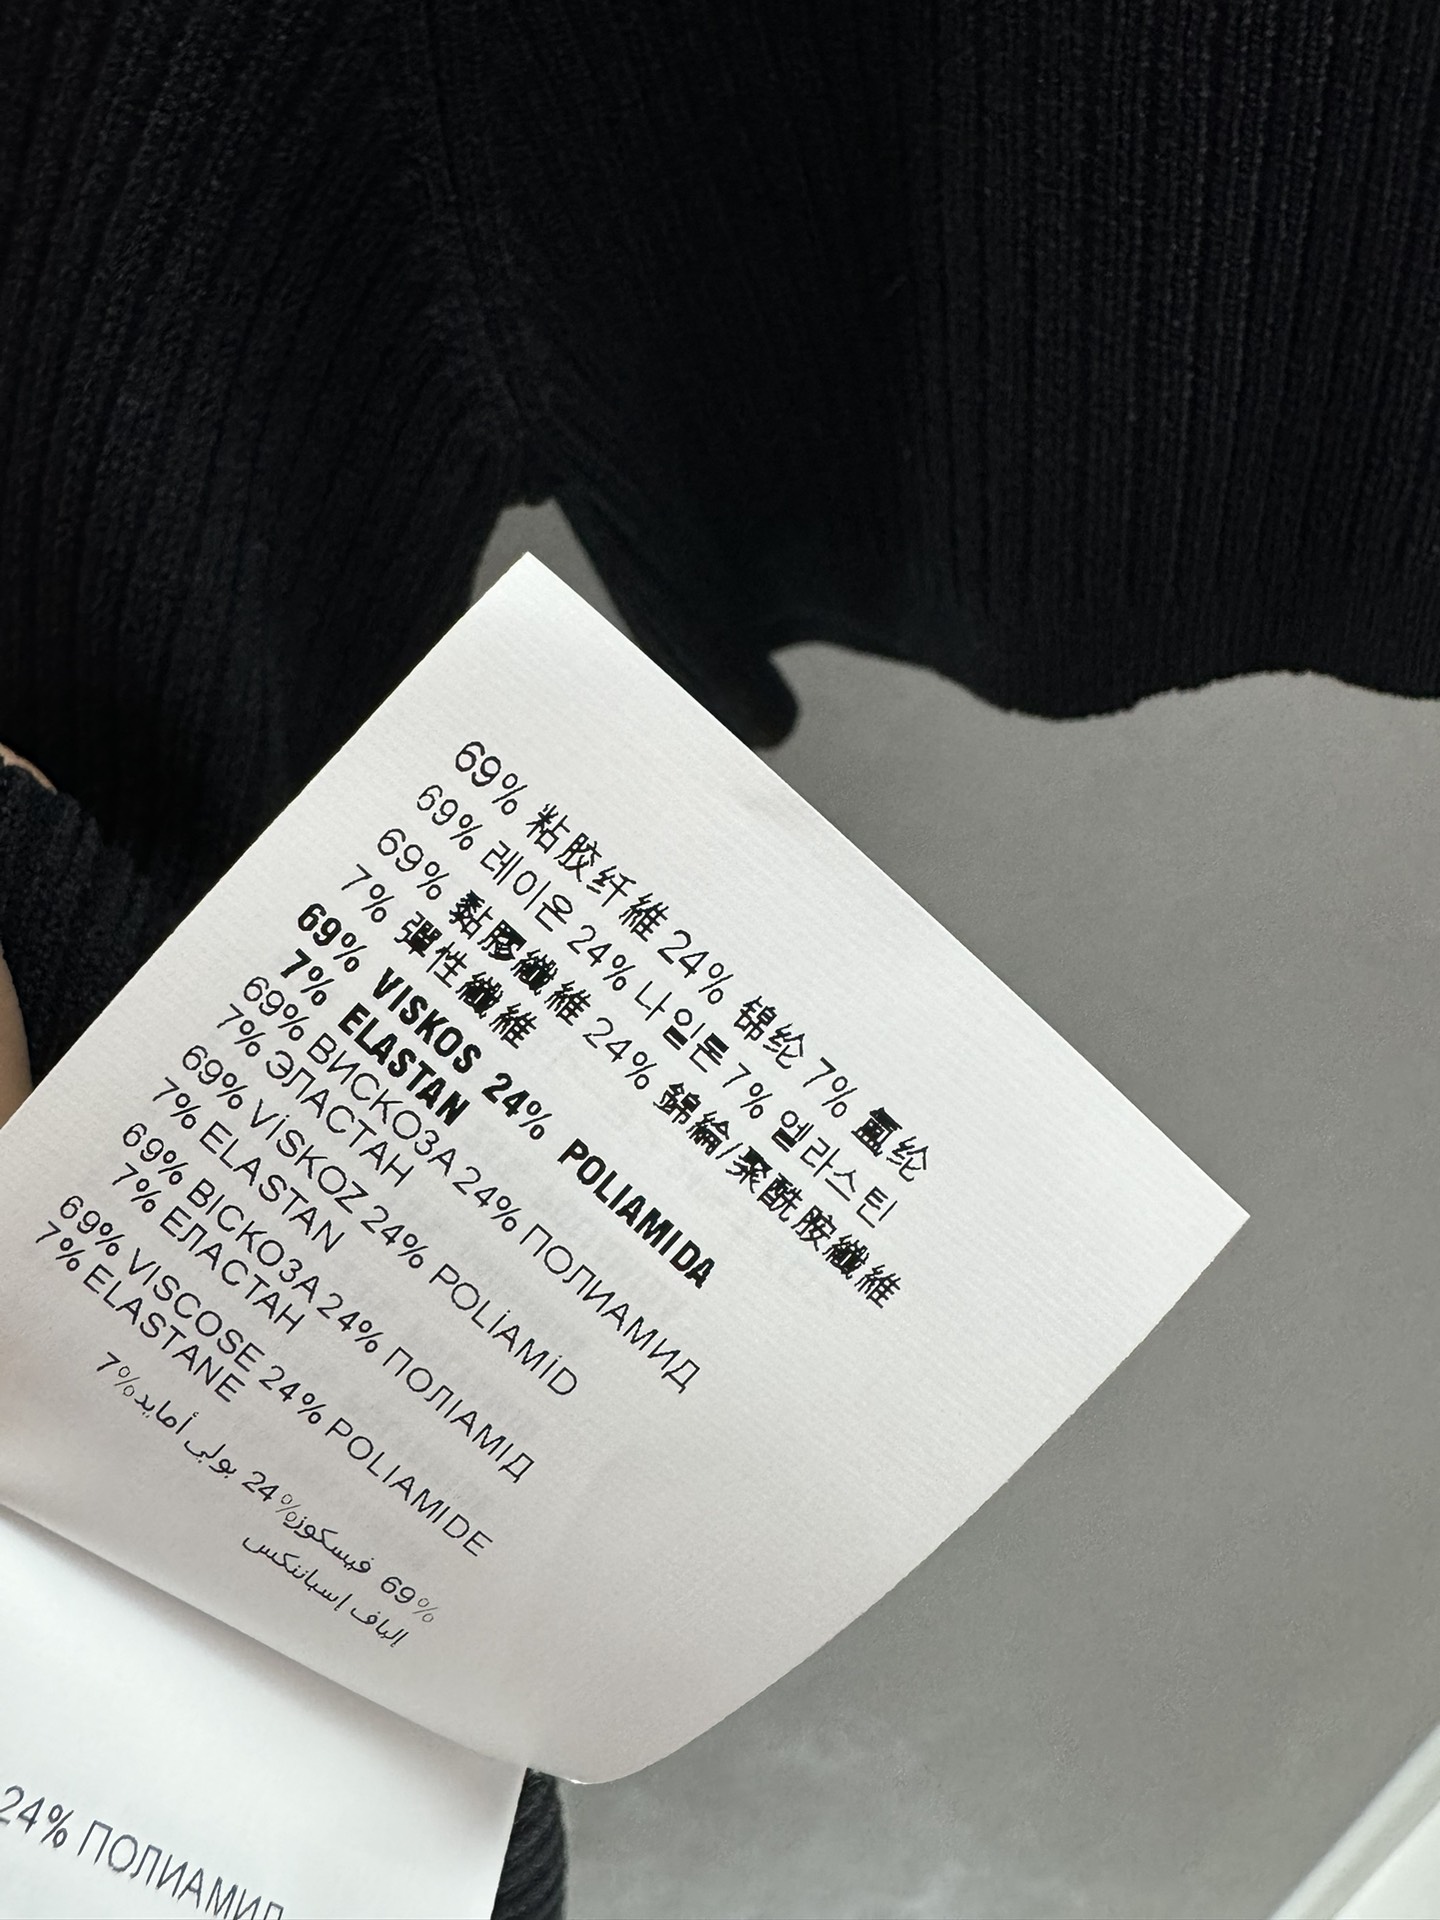 69% 粘胶纤維 24% 锦纶 7% 氩纶
69% 레이온 24% 나일론 7% 엘라스틴
69% 黏膠纖維 24% 錦綸/聚酰胺纖維
7% 彈性纖維
69% VISKOS 24% POLIAMIDA
7% ELASTAN
69% ВИСКОЗА 24% ПОЛИАМИД
7% ЭЛАСТАН
69% VİSKOZ 24% POLİAMİD
7% ELASTAN
69% ВІСКОЗА 24% ПОЛІАМІД
7% ЕЛАСТАН
69% VISCOSE 24% POLIAMIDE
7% ELASTANE
69% فيسكوز 24% بولي أمايد 7%
إلياف إسباننكس
24% ПОЛИАМИД